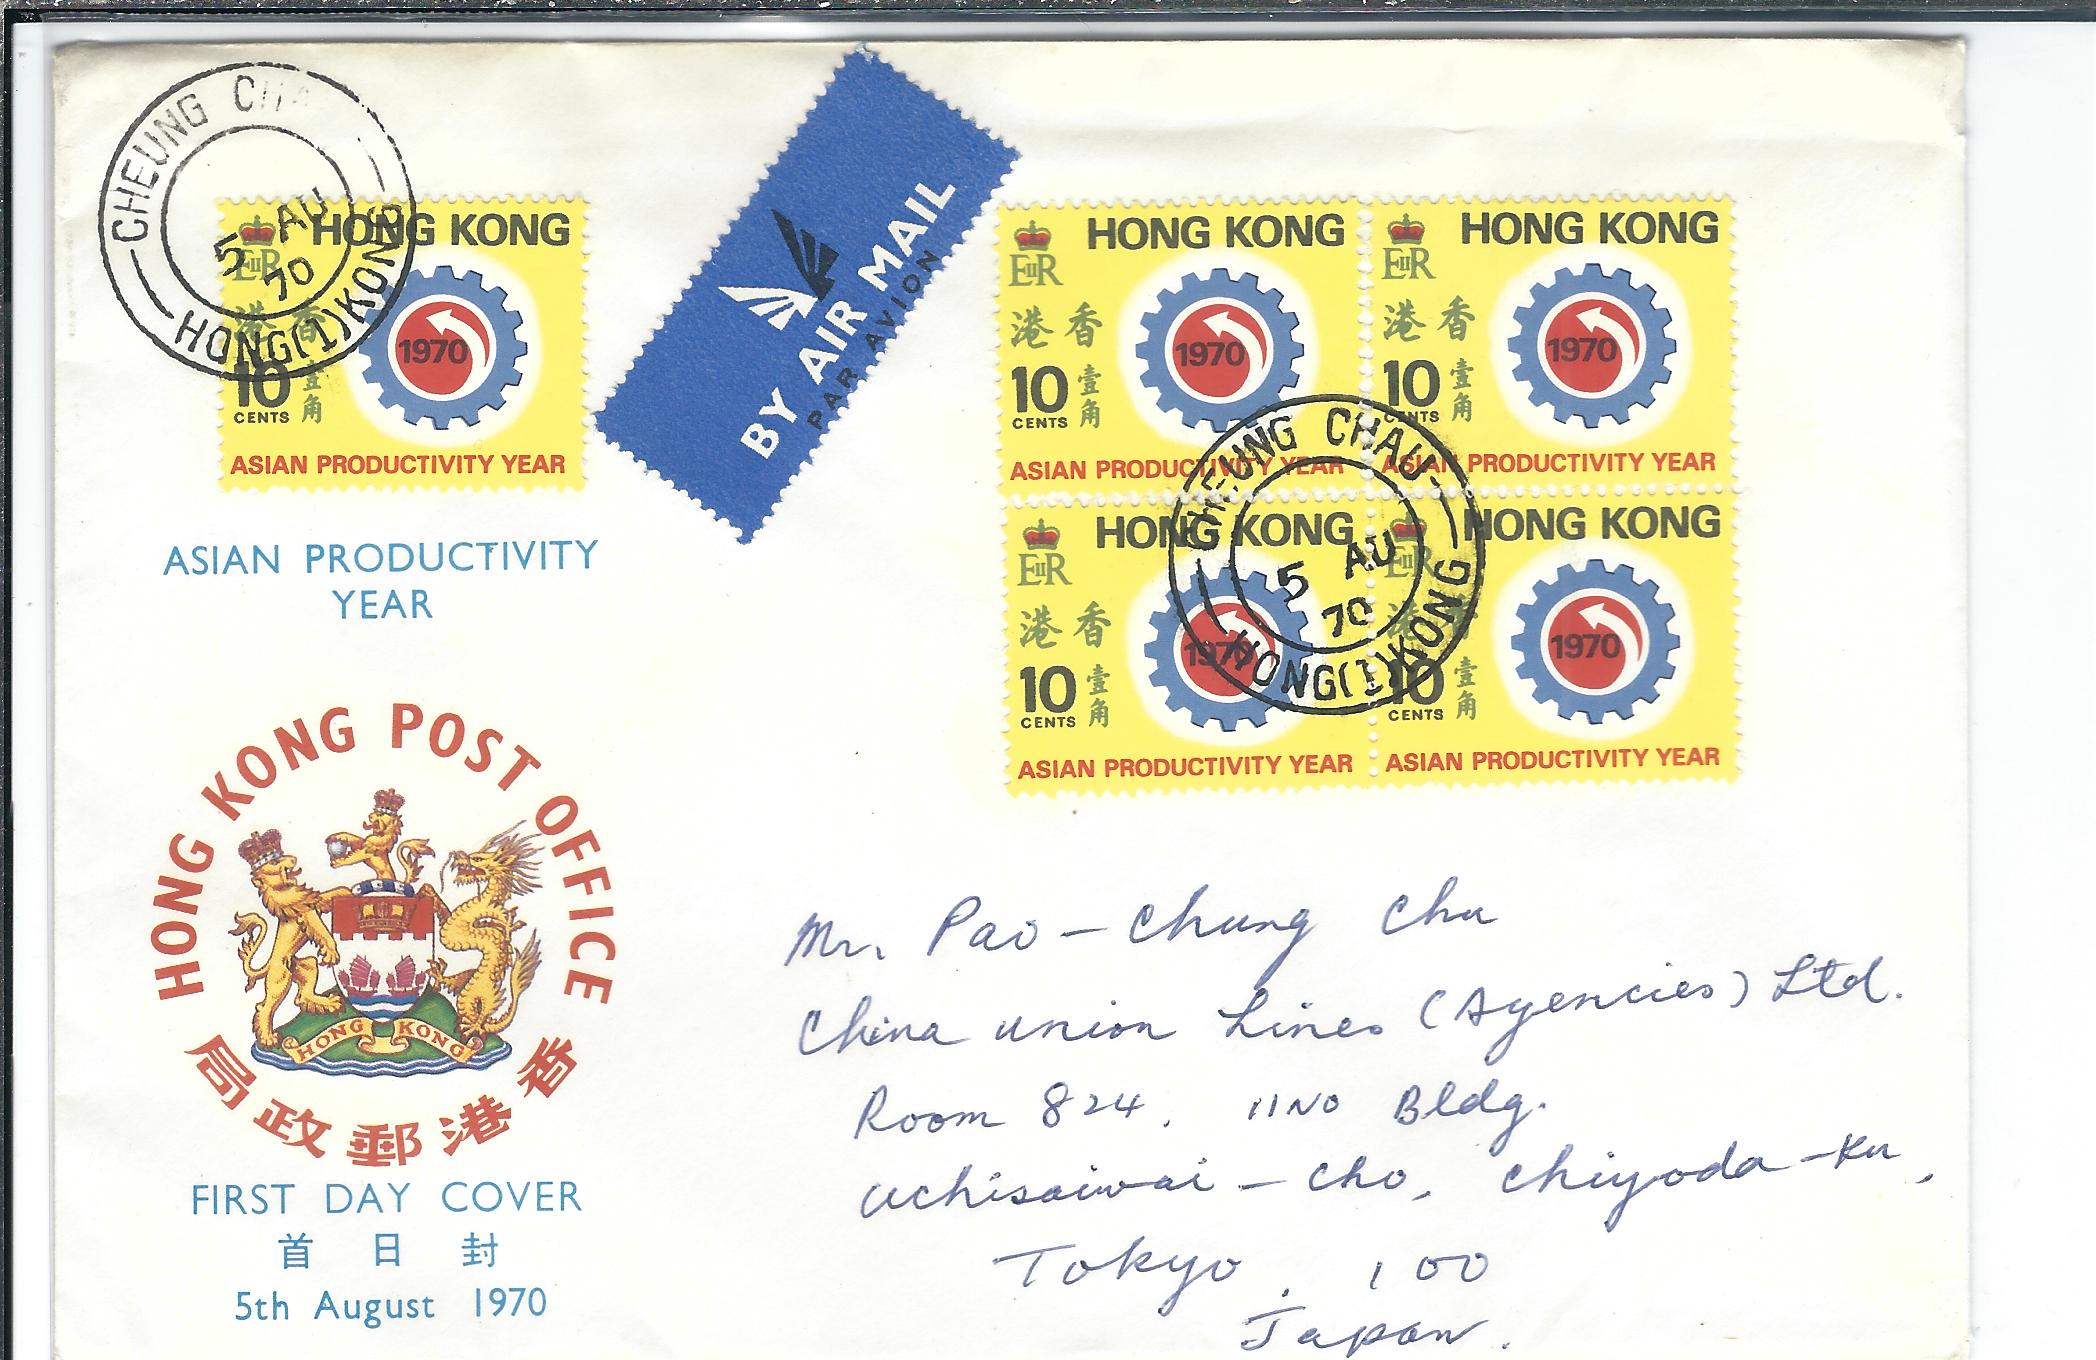 CHEUNG CHA
5 AU
70
HONG(1)KONG
HONG KONG
EIIR
港 香
1970
10 壹
CENTS 角
ASIAN PRODUCTIVITY YEAR
BY AIR MAIL
PAR AVION
HONG KONG
EIIR
港 香
1970
10 壹
CENTS 角
ASIAN PRODUCTIVITY YEAR
HONG KONG
EIIR
港 香
1970
10 壹
CENTS 角
ASIAN PRODUCTIVITY YEAR
CHEUNG CHAU
5 AU
70
HONG(1)KONG
HONG KONG
EIIR
港 香
1970
10 壹
CENTS 角
ASIAN PRODUCTIVITY YEAR
HONG KONG
EIIR
港 香
1970
10 壹
CENTS 角
ASIAN PRODUCTIVITY YEAR
ASIAN PRODUCTIVITY
YEAR
HONG KONG POST OFFICE
HONG KONG
局政郵港香
FIRST DAY COVER
首 日 封
5th August 1970
Mr. Pao-Chung Chu
China Union Lines (Agencies) Ltd.
Room 824, IINO Bldg.
Uchisaiwai-Cho, Chiyoda-Ku,
Tokyo, 100
Japan.